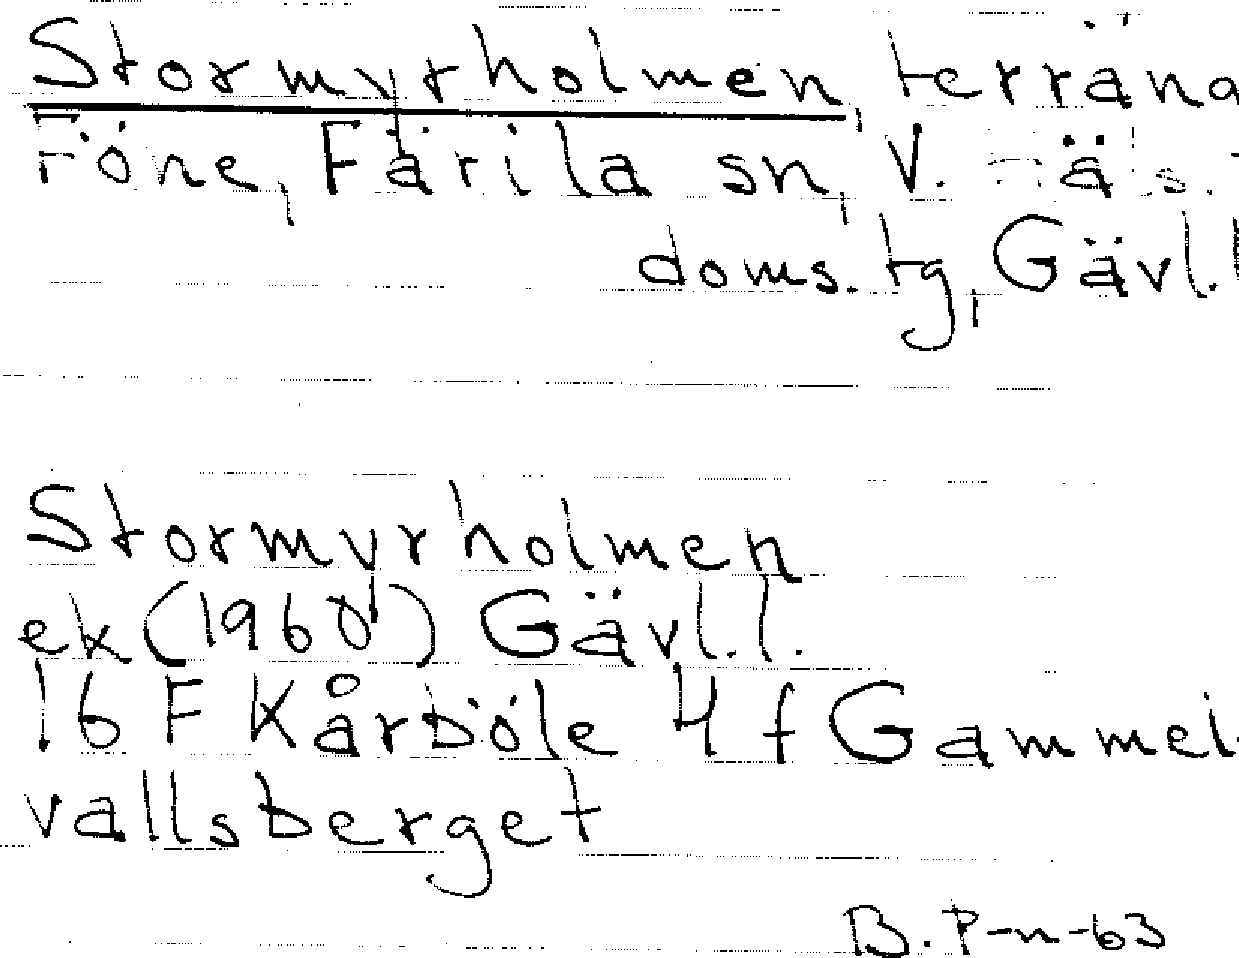 Stormyrholmen, terräng
Föne, Färila sn, V.
doms. tg, Gävl.l
Stormyrholmen
ek (1960) Gävl.l.
16 F Kårböle 4 f Gammel-
vallsberget
B. P-n-63